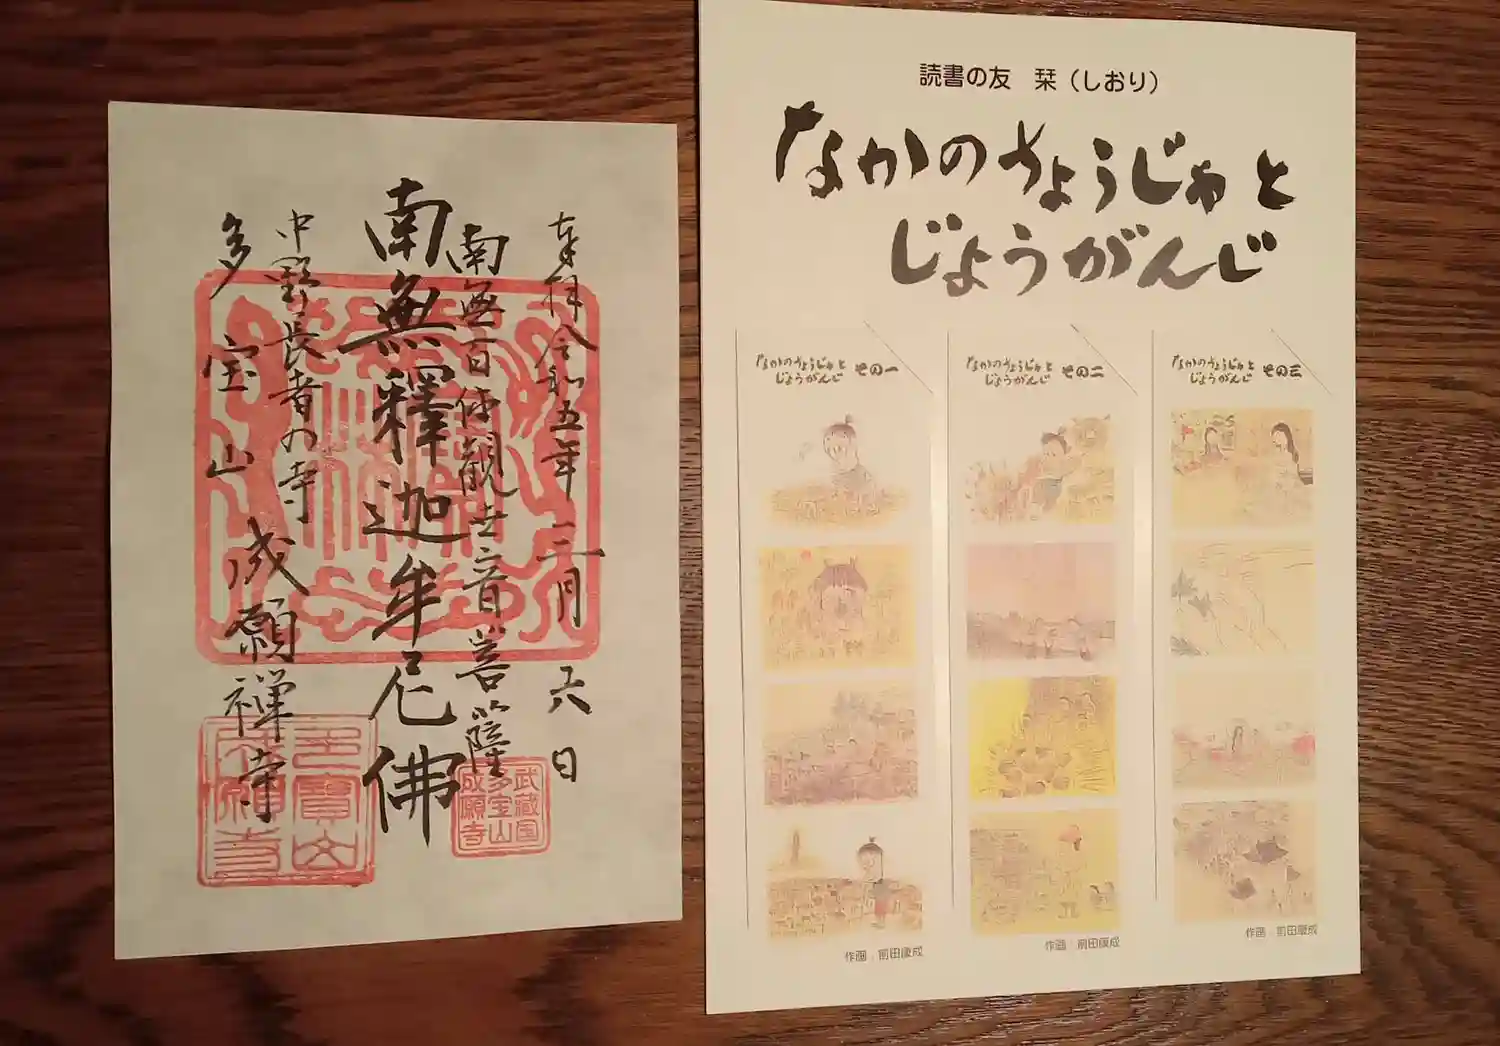 奉拝 令和五年二月六日
南無百体観世音菩薩
南無釋迦牟尼佛
中野長者の寺
多宝山 成願禅寺
武蔵国
多宝山
成願寺
読書の友 栞（しおり）
なかのちょうじゃと
じょうがんじ
なかのちょうじゃと
じょうがんじ その一
作画：前田康成
なかのちょうじゃと
じょうがんじ その二
作画：前田康成
なかのちょうじゃと
じょうがんじ その三
作画：前田康成